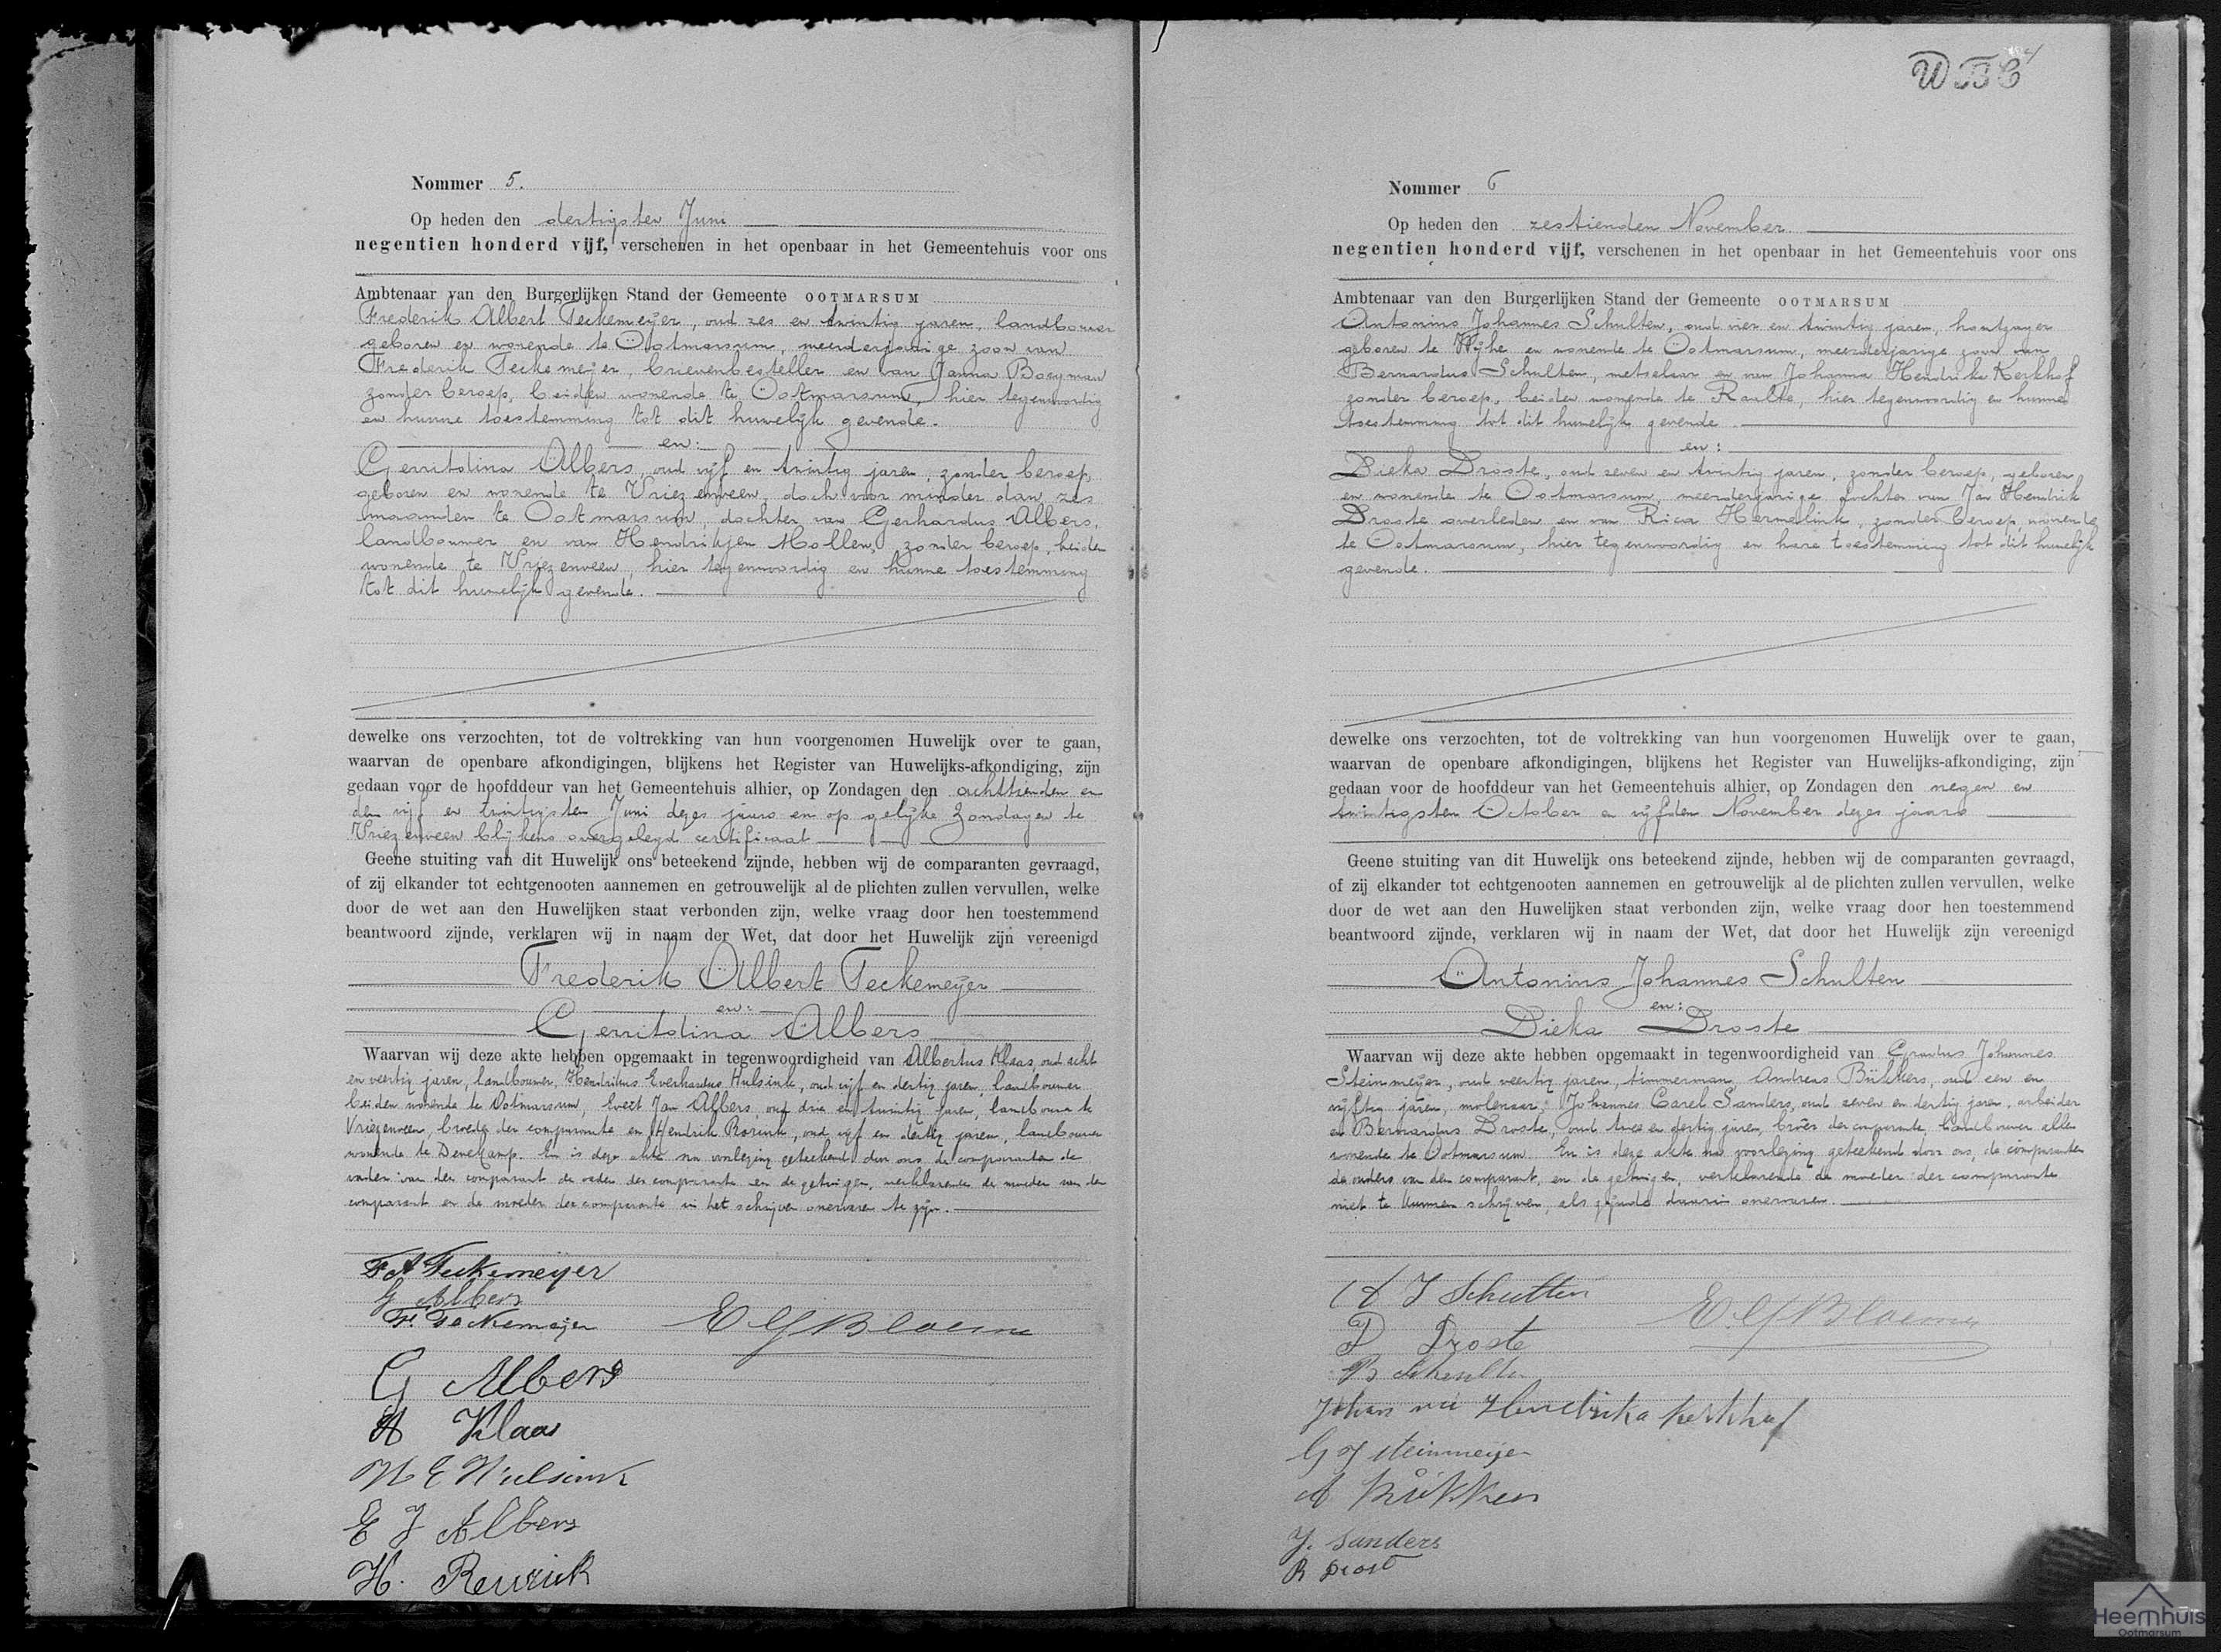 Nommer 5.
Op heden den dertigsten Juni
negentien honderd vijf, verschenen in het openbaar in het Gemeentehuis voor ons
Ambtenaar van den Burgerlijken Stand der Gemeente OOTMARSUM
Frederik Albert Teckemeijer, oud zes en twintig jaren, landbouwer
geboren en wonende te Ootmarsum, meerderjarige zoon van
Frederik Teckemeijer, brievenbesteller en van Janna Boeyman
zonder beroep, beiden wonende te Ootmarsum, hier tegenwoordig
en hunne toestemming tot dit huwelijk gevende.
en:
Gerritdina Albers, oud vijf en twintig jaren, zonder beroep,
geboren en wonende te Vriezenveen, doch voor minder dan zes
maanden te Ootmarsum, dochter van Gerhardus Albers,
landbouwer en van Hendrikjen Mollen, zonder beroep, beiden
wonende te Vriezenveen, hier tegenwoordig en hunne toestemming
tot dit huwelijk gevende.
dewelke ons verzochten, tot de voltrekking van hun voorgenomen Huwelijk over te gaan,
waarvan de openbare afkondigingen, blijkens het Register van Huwelijks-afkondiging, zijn
gedaan voor de hoofddeur van het Gemeentehuis alhier, op Zondagen den achttienden en
den vijf en twintigsten Juni dezes jaars en op gelijke Zondagen te
Vriezenveen blijkens overgelegd certificaat
Geene stuiting van dit Huwelijk ons beteekend zijnde, hebben wij de comparanten gevraagd,
of zij elkander tot echtgenooten aannemen en getrouwelijk al de plichten zullen vervullen, welke
door de wet aan den Huwelijken staat verbonden zijn, welke vraag door hen toestemmend
beantwoord zijnde, verklaren wij in naam der Wet, dat door het Huwelijk zijn vereenigd
Frederik Albert Teckemeijer
en:
Gerritdina Albers
Waarvan wij deze akte hebben opgemaakt in tegenwoordigheid van Albertus Klaas, oud acht
en veertig jaren, landbouwer, Hendrikus Everhardus Hulsink, oud vijf en dertig jaren, landbouwer
beiden wonende te Ootmarsum, Evert Jan Albers, oud drie en twintig jaren, landbouwer te
Vriezenveen, broeder der comparante en Hendrik, oud vijf en dertig jaren, landbouwer
wonende te Denekamp. En is deze akte na voorlezing geteekend door ons de comparanten de
vader van den comparant de vader der comparante en de getuigen, verklarende de moeder van den
comparant en de moeder der comparante in het schrijven onervaren te zijn.
F A Teckemeijer
G Albers
Fr. Teckemeijer
E G J Bloemen
G Albers
A Klaas
H E Hulsink
E J Albers
H.
Nommer 6
Op heden den zestienden November
negentien honderd vijf, verschenen in het openbaar in het Gemeentehuis voor ons
Ambtenaar van den Burgerlijken Stand der Gemeente OOTMARSUM
Antonius Johannes Schulten, oud vier en twintig jaren, houtzager
geboren te Wijhe en wonende te Ootmarsum, meerderjarige zoon van
Bernardus Schulten, metselaar en van Johanna Hendrika Kerkhof
zonder beroep, beiden wonende te Raalte, hier tegenwoordig en hunne
toestemming tot dit huwelijk gevende.
en:
Dieka Droste, oud zeven en twintig jaren, zonder beroep, geboren
en wonende te Ootmarsum, meerderjarige dochter van Jan Hendrik
Droste overleden en van Rica Hermelink, zonder beroep, wonende
te Ootmarsum, hier tegenwoordig en hare toestemming tot dit huwelijk
gevende.
dewelke ons verzochten, tot de voltrekking van hun voorgenomen Huwelijk over te gaan,
waarvan de openbare afkondigingen, blijkens het Register van Huwelijks-afkondiging, zijn
gedaan voor de hoofddeur van het Gemeentehuis alhier, op Zondagen den negen en
twintigsten October en vijfden November dezes jaars
Geene stuiting van dit Huwelijk ons beteekend zijnde, hebben wij de comparanten gevraagd,
of zij elkander tot echtgenooten aannemen en getrouwelijk al de plichten zullen vervullen, welke
door de wet aan den Huwelijken staat verbonden zijn, welke vraag door hen toestemmend
beantwoord zijnde, verklaren wij in naam der Wet, dat door het Huwelijk zijn vereenigd
Antonius Johannes Schulten
en:
Dieka Droste
Waarvan wij deze akte hebben opgemaakt in tegenwoordigheid van Gradus Johannes
Steinmeijer, oud veertig jaren, timmerman, Andreas Bükkers, oud een en
vijftig jaren, molenaar, Johannes Carel Sanders, oud zeven en dertig jaren, arbeider
en Bernardus Droste, oud twee en dertig jaren, broer der comparante, landbouwer allen
wonende te Ootmarsum. En is deze akte na voorlezing geteekend door ons, de comparanten
de ouders van den comparant, en de getuigen, verklarende de moeder der comparante
niet te kunnen schrijven, als zijnde daarin onervaren.
A J Schulten
E G J Bloemen
D Droste
B Schulten
Johanna Hendrika Kerkhof
G J Steinmeijer
A Bükkers
J. Sanders
B Drost
Heemhuis
Ootmarsum